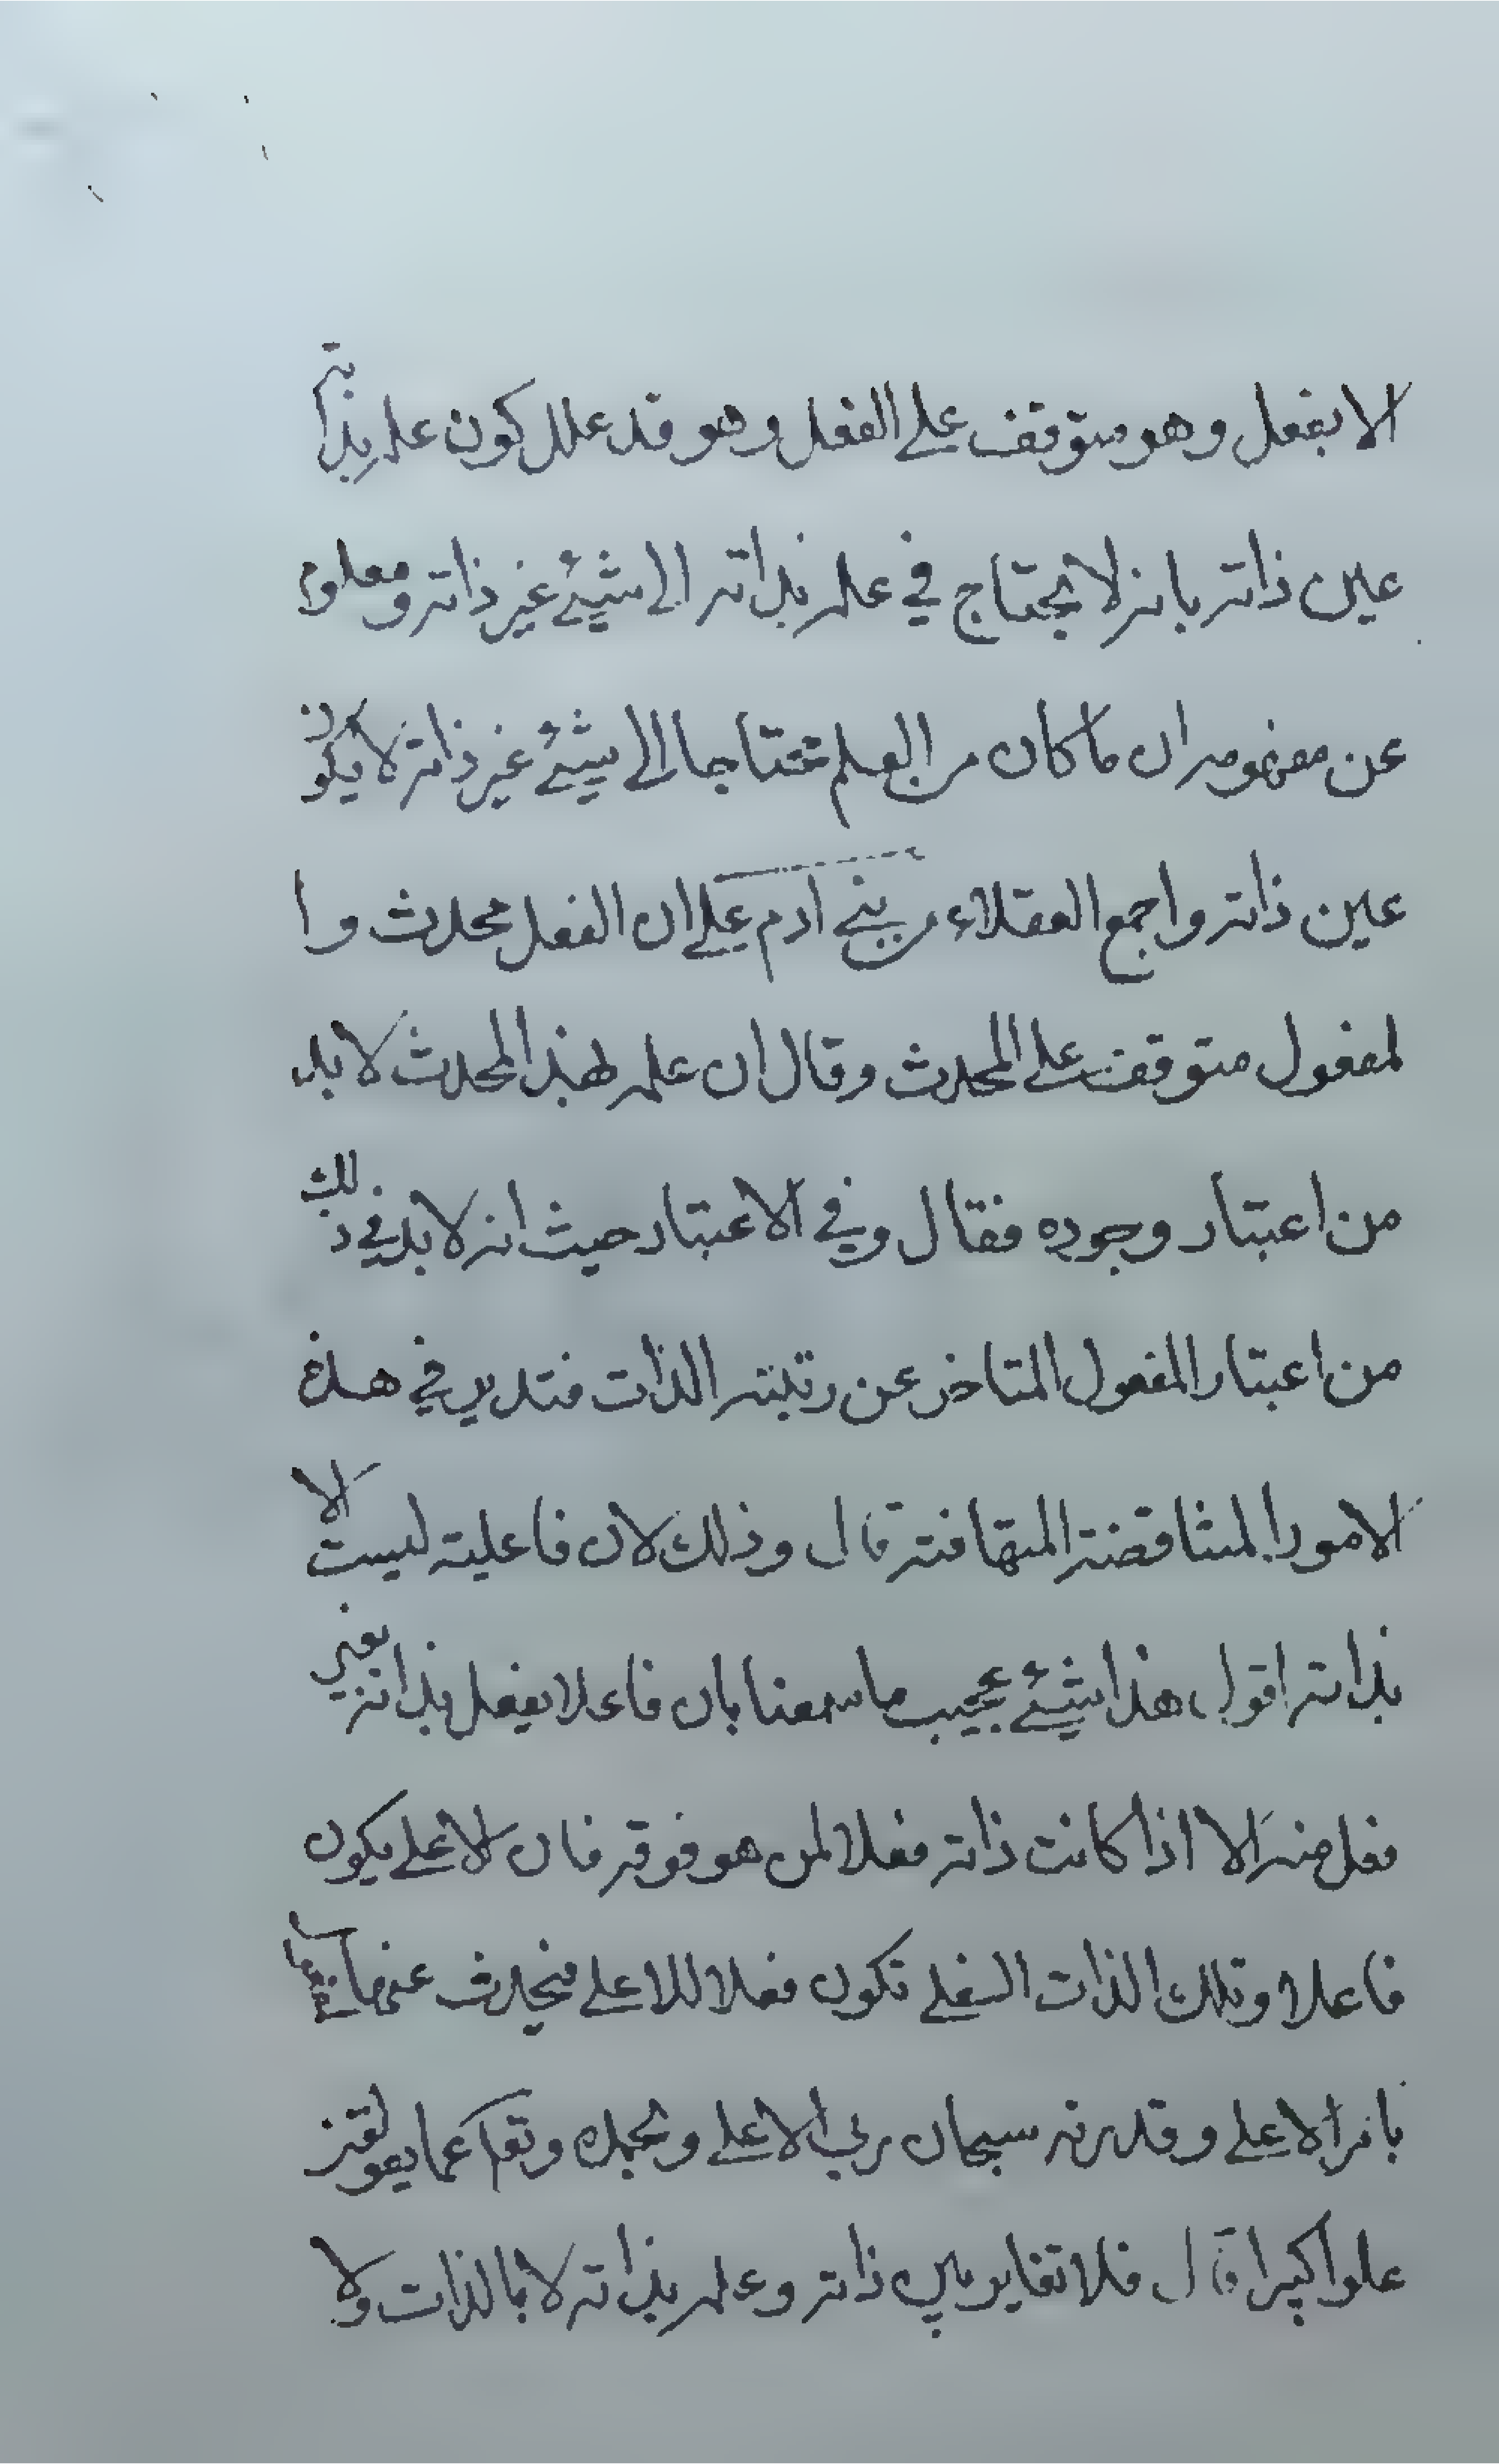 الا بفعل وهو متوقف علي الفعل وهو قد علل كون علمه بذاته
عين ذاته بانه لا يحتاج في علمه بذاته الي شيئ غير ذاته ومعلوم
عن مفهومه ان ما كان من العلم محتاجا الي شيئ غير ذاته لا يكون
عين ذاته واجمع العقلاء من بني ادم علي ان الفعل محدث وا
لمفعول متوقف علي المحدث وقال ان علمه لهذا المحدث لا بد
من اعتبار وجوده فقال وفي الاعتبار حيث انه لا بد في ذلك
من اعتبار المفعول المتاخر عن رتبته الذات فتدبر في هذه
الامور المتناقضة المتهافتة قال وذلك لان فاعليته ليست الا
بذاته اقول هذا شيئ عجيب ما سمعنا بان فاعلا يفعل بذاته بغير
فعل منه الا اذا كانت ذاته فعلا لمن هو فوقه فان الاعلي يكون
فاعلا وتلك الذات السفلي تكون فعلا للاعلي فيحدث عنها
بامر الاعلي وقدرته سبحان ربي الاعلي وبحمده وتعا عما يقولون
علوا كبيرا قال فلا تغاير بين ذاته وعلمه بذاته لا بالذات ولا